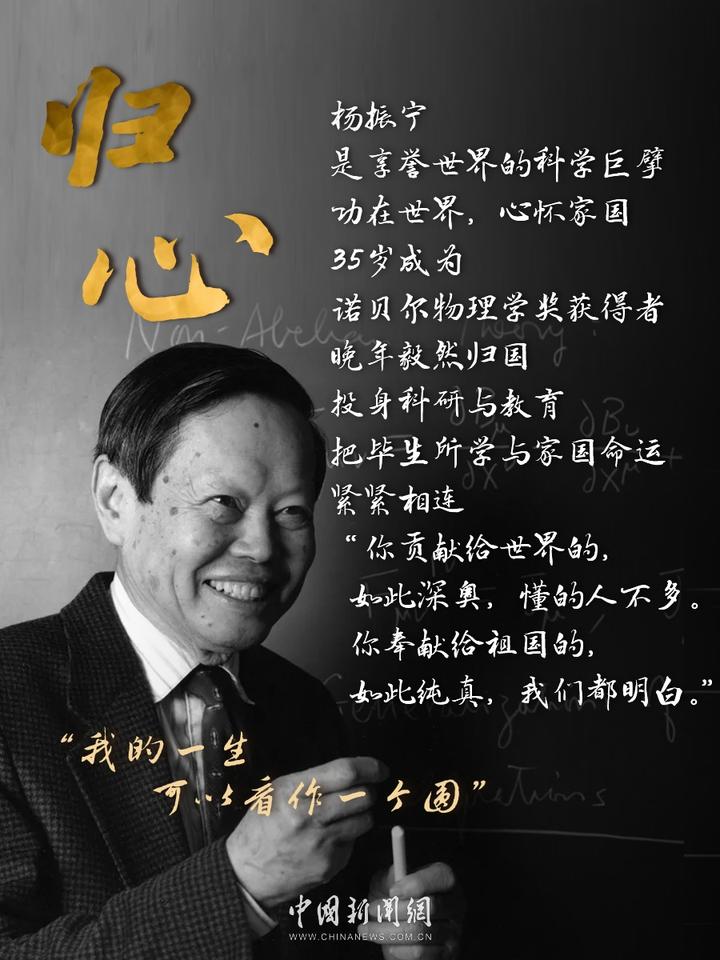 归
心
杨振宁
是享誉世界的科学巨擘
功在世界，心怀家国
35岁成为
诺贝尔物理学奖获得者
晚年毅然归国
投身科研与教育
把毕生所学与家国命运
紧紧相连
“你贡献给世界的，
如此深奥，懂的人不多。
你奉献给祖国的，
如此纯真，我们都明白。”
“我的一生
可以看作一个圆”
Non-Abelian
中國新聞網
WWW.CHINANEWS.COM.CN